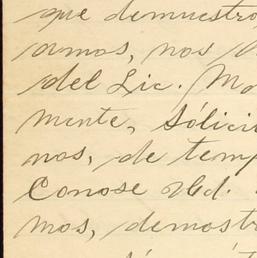 que demuestro
amos, nos
del Lic. Mo
mente, sólici
nos, de temp
Conose Ud.
mos, demostr